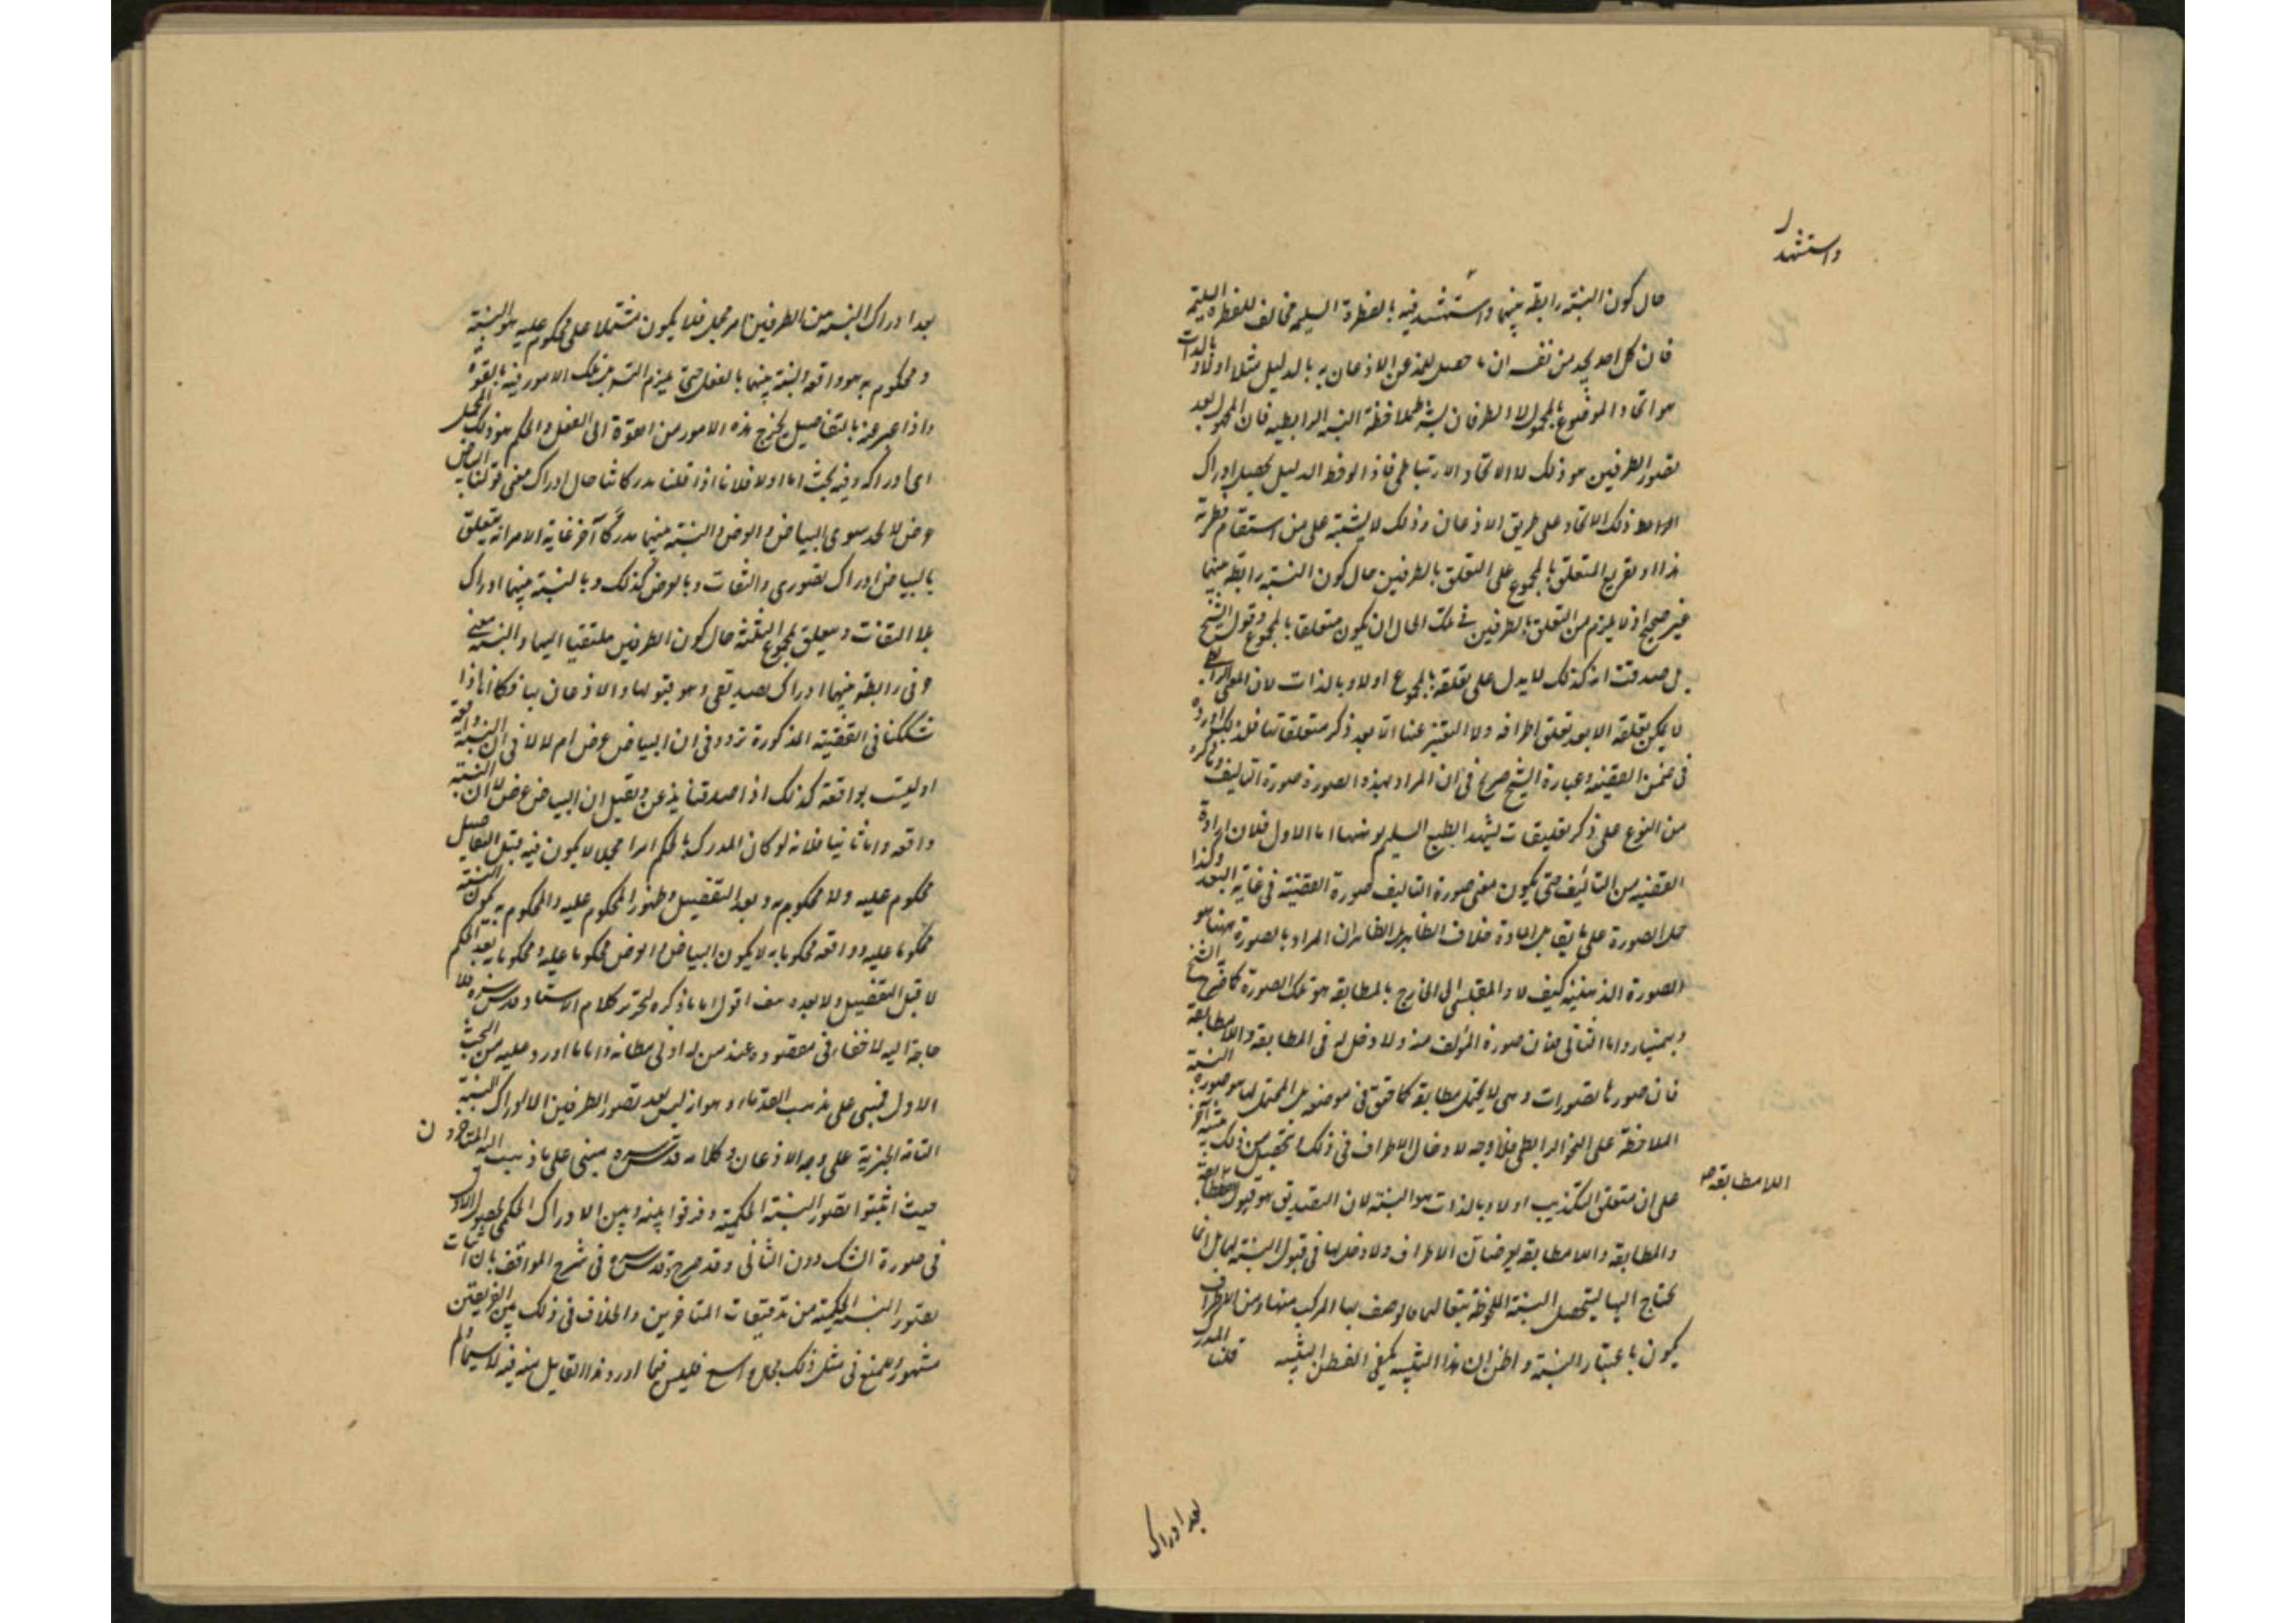 واستشهد
حال كون النسبة رابطة بينهما واستشهد فيه بالفطرة السليمة مخالف للفطرة السليمة
فان كل احد يجد من نفسه ان ما حصل للذهن الاذعان به بالدليل مثلا اولا وبالذات
هو اتحاد الموضوع بالمحمول لا الطرفان بشرط ملاحظة النسبة الرابطية فان المجهول بعد
تصور الطرفين هو ذلك لا الاتحاد الارتباطي فاذا لوحظ الدليل يحصل ادراك
ذلك الاتحاد على طريق الاذعان وذلك لا يشتبه على من استقام فطرته
هذا وتفريع المتعلق بالمجموع على التعلق بالطرفين حال كون النسبة رابطة بينهما
غير صحيح اذ لا يلزم من التعلق بالطرفين في تلك الحال ان يكون متعلقا بالمجموع وقول الشيخ
بل صدقت انه كذلك لا يدل على تعلقه بالمجموع اولا وبالذات لان المعنى الرابطي
لا يمكن تعلقه الا بعد تعلق اطرافه ولا التعبير عنها الا بعد ذكر متعلقاتها فلذلك اورده
في ضمن القضية وعبارة الشيخ صريح في ان المراد بهذه الصورة صورة التاليف وما ذكره
من النوع على ذكر تعليقات يشهد الطبع السليم بوهنها اما الاول فلان ارادة
القضية من التاليف حتى يكون معنى صورة التاليف صورة القضية في غاية البعد وكذا
حمل الصورة على ما يقابل المادة خلاف الظاهر بل الظاهر ان المراد بالصورة ههنا هو
الصورة الذهنية كيف لا والمقيس الى الخارج بالمطابقة هو تلك الصورة كما صرح به الشيخ
وبهمنيار واما الثاني فلان صورة المؤلف منه ولا دخل له في المطابقة واللامطابقة
فان صورها تصورات وهي لا يحتمل مطابقة كما حقق في موضعه بل المحتمل لها هو صورة النسبة
الملاحظة على النحو الرابطي فلا وجه لادخال الاطراف في ذلك
اللامطابقة صح
على ان متعلق التكذيب اولا وبالذات هو النسبة لان التصديق هو قبول المطابقة
والمطابقة واللامطابقة يعرضان الاطراف ولا دخل لها في قبول النسبة لها بل انما
يحتاج اليها ليتحصل النسبة الملحوظة تبعا لها فالوصف بها المركب منها ومن الاطراف
يكون باعتبار النسبة واظن ان هذا التنبيه يكفي الفطن النبيه قلت المدرك
بعد ادراك
بعد ادراك النسبة من الطرفين امر مجمل فلا يكون مشتملا على محكوم عليه هو النسبة
ومحكوم به هو واقعة والنسبة بينهما بالفعل حتى يلزم التسلسل تلك الامور فيه بالقوة
واذا عبر عنه بالتفاصيل يخرج هذه الامور من القوة الى الفعل والحكم هو ذلك المجمل
اى ادراكه وفيه بحث اما اولا فلانا اذا قلنا مدركاتنا حال ادراك معنى قولنا البياض
عرض لا نجد سوى البياض والعرض والنسبة بينهما مدركا آخر غاية الامر انه يتعلق
بالبياض ادراك تصوري والتفات وبالعرض كذلك وبالنسبة بينهما ادراك
بلا التفات ويتعلق بمجموع الثلثة حال كون الطرفين ملتفتا اليهما والنسبة معنى
حرفي رابطة بينهما ادراك تصديقي وهو قبولها والاذعان بها فكما انا اذا
شككنا في القضية المذكورة نتردد في ان البياض عرض ام لا لا في ان النسبة واقعة
او ليست بواقعة كذلك اذا صدقنا نذعن ونقبل ان البياض عرض لا ان النسبة
واقعة واما ثانيا فلانه لو كان المدرك بالحكم امرا مجملا لا يكون فيه قبل التفاصيل
محكوم عليه ولا محكوم به وبعد التفصيل وظهور المحكوم عليه والمحكوم به يكون النسبة
محكوما عليه وواقعة محكوما به لا يكون البياض والعرض محكوما عليه ومحكوما به بعد الحكم
لا قبل التفصيل ولا بعده هف اقول اما ما ذكره لتحرير كلام الاستاد قدس سره فلا
حاجة اليه لا خفاء في مقصوده عند من له ادنى فطانة واما ما اورد عليه من البحث
الاول فمبني على مذهب القدماء وهو انه ليس بعد تصور الطرفين الا ادراك النسبة
التامة الخبرية على وجه الاذعان وكلامه قدس سره مبني على ما ذهب اليه المتاخرون
حيث اثبتوا تصور النسبة الحكمية وفرقوا بينه وبين الادراك الحكمي لحصول الاول
في صورة الشك دون الثاني وقد صرح قدس سره في شرح المواقف بان اثبات
تصور النسبة الحكمية من تدقيقات المتاخرين والخلاف في ذلك بين الفريقين
مشهور وللمنع في مثل ذلك مجال واسع فليس فيما اورد هذا القائل منه فيه لاسيما ولم